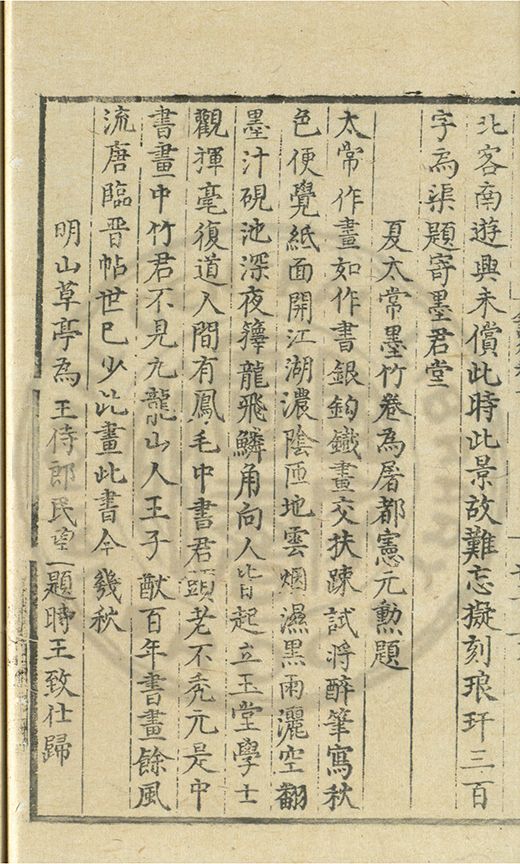 北客南遊興未償此時此景故難忘擬刻琅玕三百
字為渠題寄墨君堂
夏太常墨竹卷為屠都憲元勲題
太常作畫如作書銀鈎鐵畫交扶踈試将醉筆寫秋
色便覺紙面開江湖濃陰匝地雲烟濕黒雨灑空翻
墨汁硯池深夜籜龍飛鱗角向人皆起立玉堂學士
觀揮毫復道人間有鳳毛中書君頭老不禿元是中
書畫中竹君不見九龍山人王子猷百年書畫餘風
流唐臨晋帖世已少此畫此書今幾秋
明山草亭為王侍郎民望題時王致仕歸